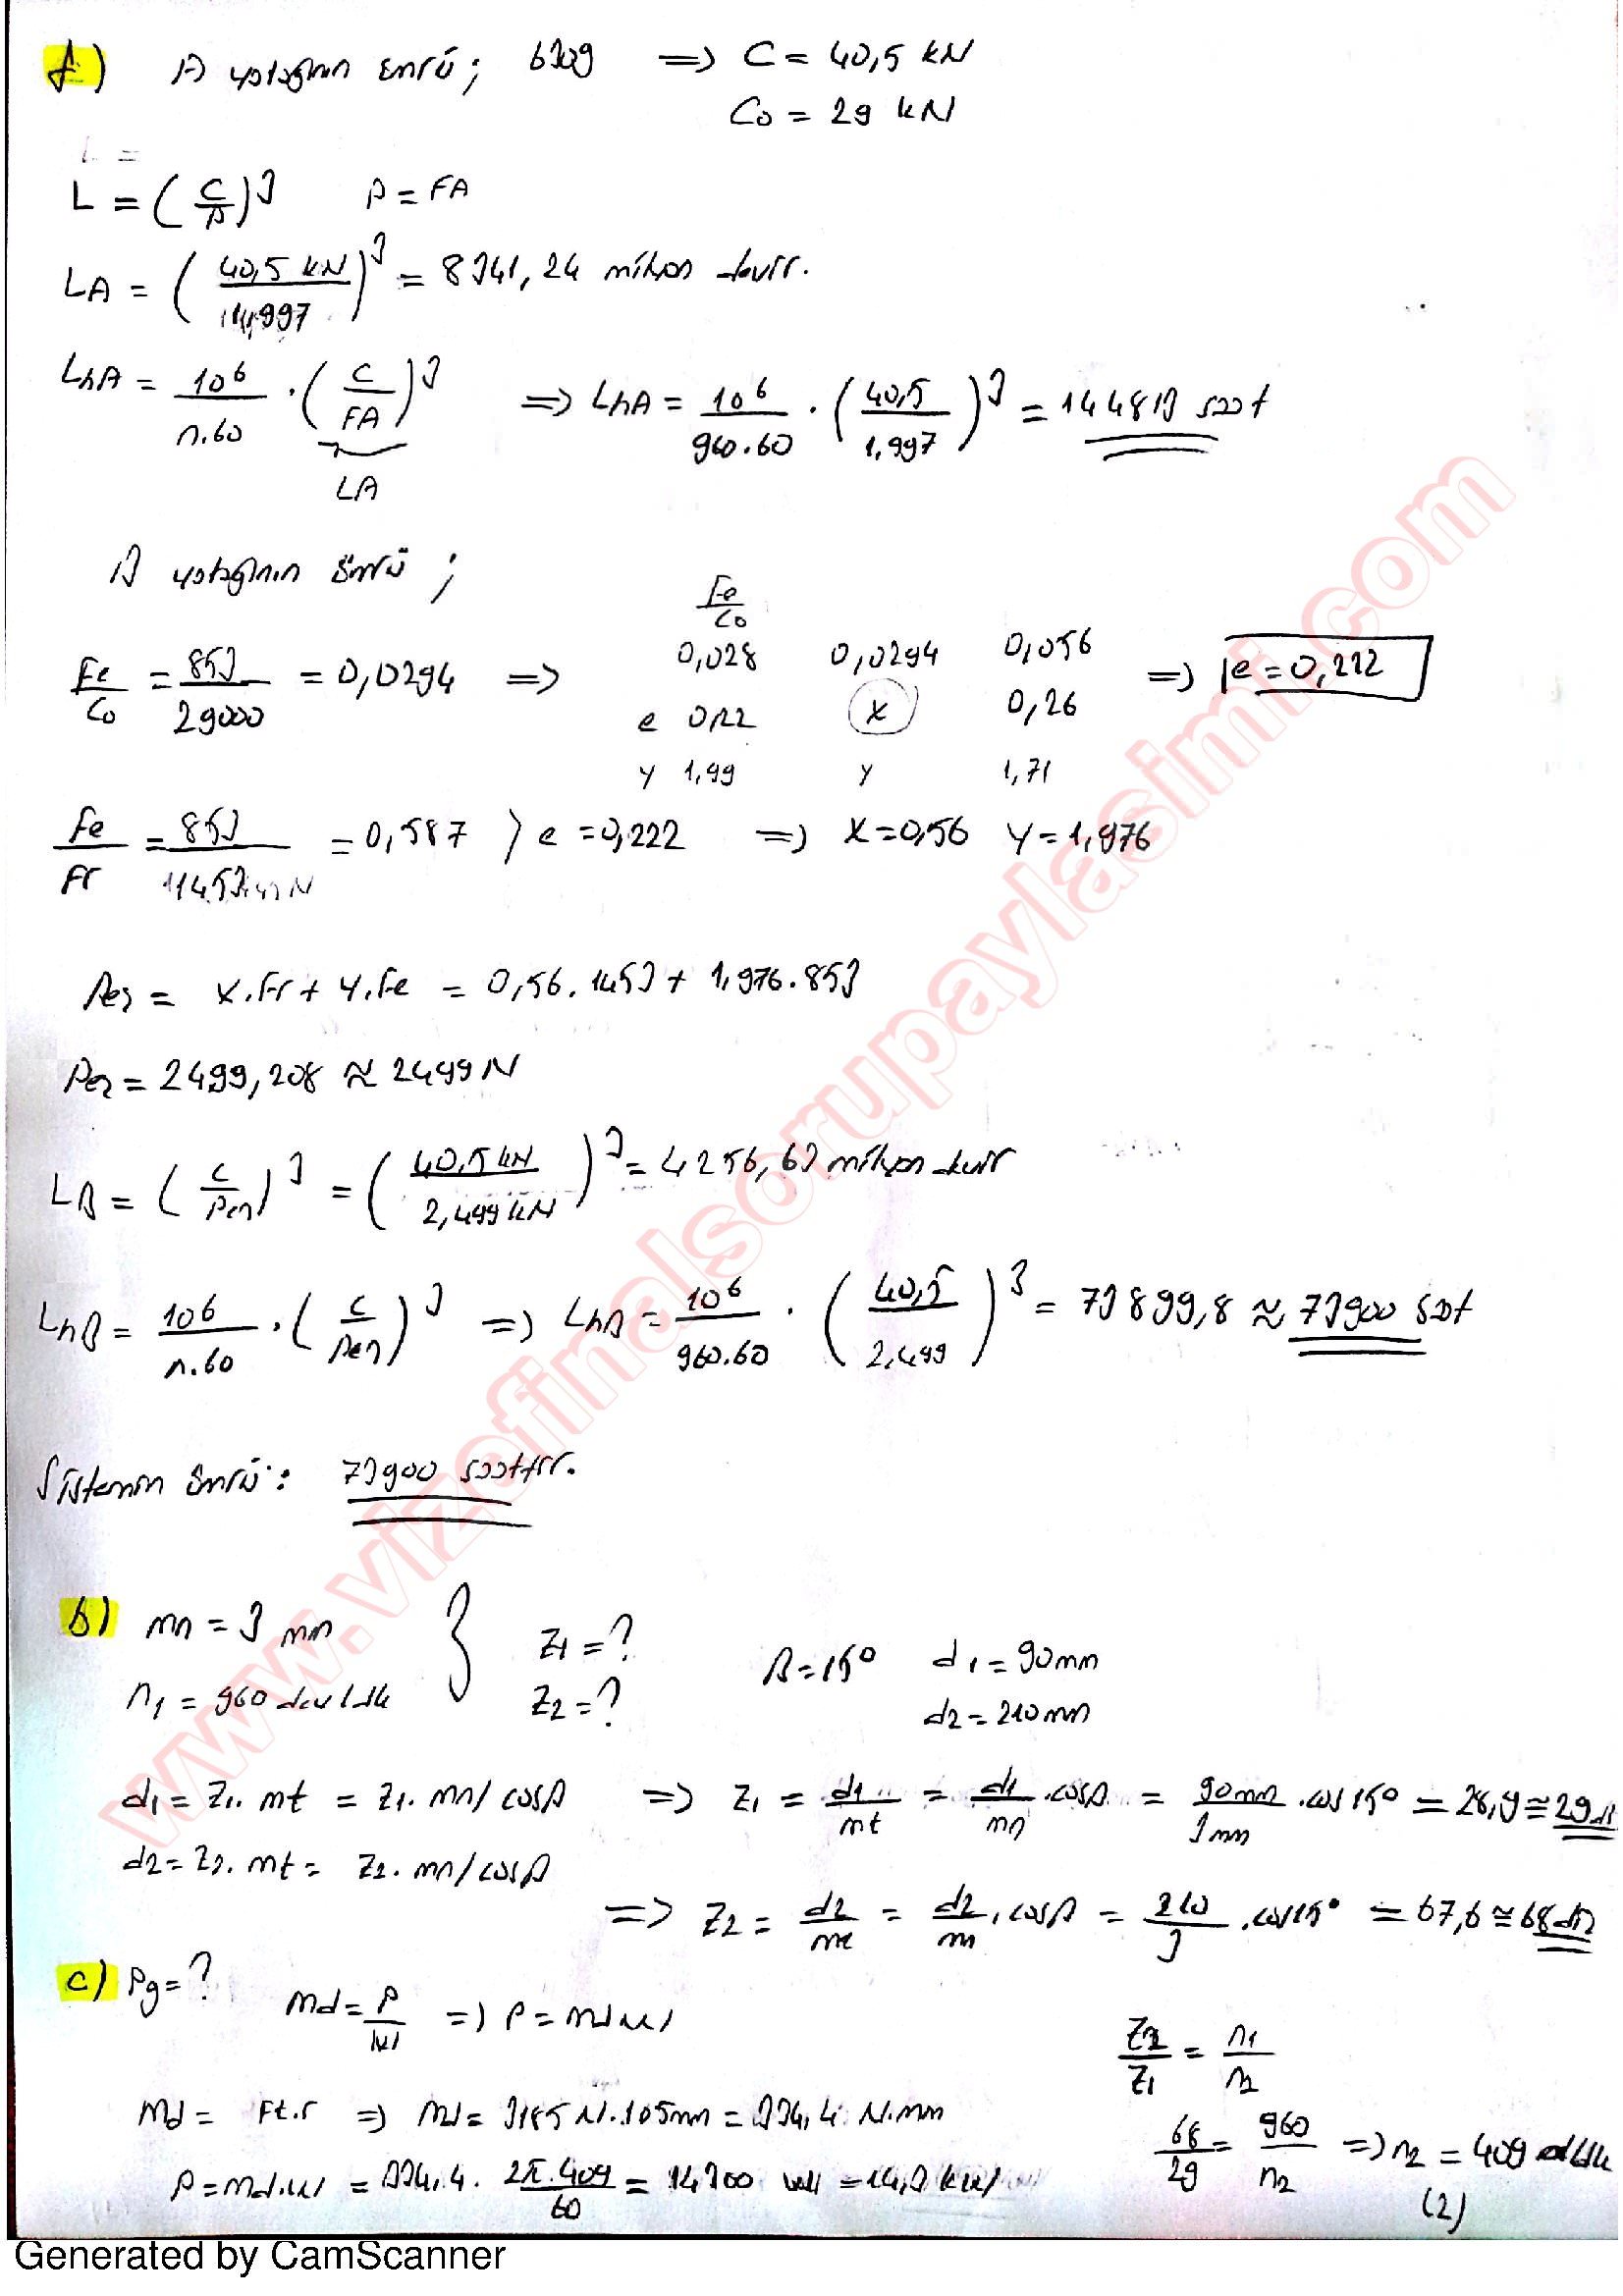 f) A yatağının ömrü; 6309 => C = 40,5 kN
C0 = 29 kN
L = (C/P)^3 P = FA
LA = (40,5 kN / 1,997)^3 = 8341,24 milyon devir.
LhA = 10^6/n.60 . (C/FA)^3 => LhA = 10^6/960.60 . (40,5/1,997)^3 = 144813 saat
LA
B yatağının ömrü;
Fe/C0
Fe/C0 = 853/29000 = 0,0294 => 0,028 0,0294 0,056 => e = 0,222
e 0,22 x 0,26
y 1,99 y 1,71
Fe/Fr = 853/1453 N = 0,587 > e = 0,222 => X = 0,56 Y = 1,976
Peş = X.Fr + Y.Fe = 0,56.1453 + 1,976.853
Peş = 2499,208 ≈ 2499 N
LB = (C/Peş)^3 = (40,5 kN / 2,499 kN)^3 = 4256,63 milyon devir
LhB = 10^6/n.60 . (C/Peş)^3 => LhB = 10^6/960.60 . (40,5/2,499)^3 = 73899,8 ≈ 73900 saat
Sistemin ömrü: 73900 saattir.
b) mn = 3 mm } z1 = ? β = 15° d1 = 90 mm
n1 = 960 dev/dk z2 = ? d2 = 210 mm
d1 = z1. mt = z1. mn/cosβ => z1 = d1/mt = d1/mn . cosβ = 90mm/3mm . cos 15° = 28,9 ≅ 29 diş
d2 = z2. mt = z2. mn/cosβ
=> z2 = d2/mt = d2/mn . cosβ = 210/3 . cos15° = 67,6 ≅ 68 diş
c) Pg = ? Md = P/w => P = Md.w
z2/z1 = n1/n2
Md = Ft.r => Md = 3185 N.105mm = 334,4 N.mm
68/29 = 960/n2 => n2 = 409 d/dk
P = Md.w = 334,4 . 2π.409/60 = 14300 watt = 14,3 kW
(2)
www.vizefinalsorupaylasimi.com
Generated by CamScanner